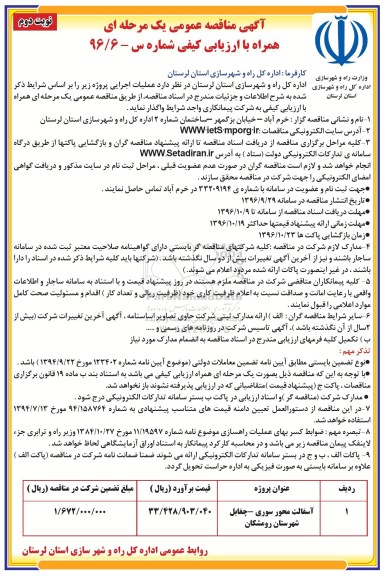 آگهی مناقصه عمومی یک مرحله ای
همراه با ارزیابی کیفی شماره س – ۹۶/۶
نوبت دوم
وزارت راه و شهرسازی
اداره کل راه و شهرسازی
استان لرستان
کارفرما : اداره کل راه و شهرسازی استان لرستان
اداره کل راه و شهرسازی استان لرستان در نظر دارد عملیات اجرایی پروژه زیر را بر اساس شرایط ذکر
شده به شرح اطلاعات و جزئیات مندرج در اسناد مناقصه، از طریق مناقصه عمومی یک مرحله ای همراه
با ارزیابی کیفی به شرکت پیمانکاری واجد شرایط واگذار نماید.
۱-نام و نشانی مناقصه گزار : خرم آباد – خیابان بزگمهر –ساختمان شماره ۲ اداره کل راه و شهرسازی استان لرستان
۲- آدرس سایت الکترونیکی مناقصات :www.ietS.mporg.ir
۳-کلیه مراحل برگزاری مناقصه از دریافت اسناد مناقصه تا ارائه پیشنهاد مناقصه گران و بازگشایی پاکتها از طریق درگاه
سامانه ی تدارکات الکترونیکی دولت (ستاد ) به آدرس WWW.Setadiran.ir
انجام خواهد شد و لازم است مناقصه گران در صورت عدم عضویت قبلی ، مراحل ثبت نام در سایت مذکور و دریافت گواهی
امضای الکترونیکی را جهت شرکت در مناقصه محقق سازند .
●جهت ثبت نام و عضویت در سامانه با شماره ی ۳۳۲۰۹۱۹۴ در خرم آباد تماس حاصل نمایند .
●تاریخ انتشار مناقصه در سامانه ۱۳۹۶/۹/۲۹
●مهلت دریافت اسناد مناقصه از سامانه تا ۱۳۹۶/۱۰/۹
●مهلت زمانی ارائه پیشنهاد قیمتها حداکثر ۱۳۹۶/۱۰/۱۹
●زمان بازگشایی پاکت ها ۱۳۹۶/۱۰/۲۳
۴-مدارک لازم شرکت در مناقصه : کلیه شرکتهای مناقصه گر بایستی دارای گواهینامه صلاحیت معتبر ثبت شده در سامانه
ساجار باشند و نیز از آخرین آگهی تغییرات بیش از دو سال نگذشته باشد . (شرکتها باید کلیه شرایط ذکر شده در اسناد را دارا
باشند ، در غیر اینصورت پاکات ارائه شده مردود اعلام می شوند.)
۵- کلیه پیمانکاران متقاضی شرکت در مناقصه ملزم هستند در روز پیشنهاد قیمت و با استناد به سامانه ساجار و اطلاعات
واقعی با رعایت امانت و صداقت نسبت به اعلام ظرفیت کاری خود (ظرفیت ریالی و تعداد کار ) اقدام و مسئولیت صحت کامل
موارد اعلامی را قبول نمایند .
۶-سایر شرایط مناقصه گران : الف ) ارائه مدارک ثبتی شرکت حاوی تصاویر اساسنامه ، آگهی آخرین تغییرات شرکت (بیش از
۲سال از آن نگذشته باشد )، آگهی تاسیس شرکت در روزنامه های رسمی و ....
ب ) تکمیل کلیه فرمهای ارزیابی مندرج در اسناد مناقصه به انضمام مدارک مورد نیاز
تذکر مهم :
●نوع تضمین بایستی مطابق آیین نامه تضمین معاملات دولتی (موضوع آیین نامه شماره ۱۲۳۴۰۲ مورخ ۱۳۹۴/۹/۲۲ ) باشد .
●با توجه به این که مناقصه ذیل بصورت یک مرحله ای همراه ارزیابی کیفی می باشد به استناد بند ب ماده ۱۹ قانون برگزاری
مناقصات ، پاکت ج (پیشنهاد قیمت )متقاضیانی که در ارزیابی پذیرفته نشوند باز نخواهد شد.
● مدارک شرکت (مناقصه گر )و اسناد ارزیابی در پاکت ب بستر سامانه تدارکات الکترونیکی درج شود .
۷-در این مناقصه از دستورالعمل تعیین دامنه قیمت های متناسب پیشنهادی به شماره ۹۴/۱۵۸۷۶۴ مورخ ۱۳۹۴/۷/۱۳
استفاده خواهد شد.
۸-تبصره مهم : ضوابط کسر بهای عملیات راهسازی موضوع نامه شماره ۱۱/۱۹۵۹۷ مورخ ۱۳۸۴/۱۰/۲۷ وزیر راه و ترابری جزء
لاینفک پیمان مناقصه زیر می باشد و در محاسبه کارکرد پیمانکار به استناد اوراق آزمایشگاهی لحاظ خواهد شد .
۹- پاکات الف ، ب و ج در بستر سامانه تدارکات الکترونیکی ارائه می شوند ضمنا ضمانت نامه شرکت در مناقصه (پاکت الف )
علاوه بر سامانه بایستی به صورت فیزیکی به اداره حراست تحویل گردد.
ردیف عنوان پروژه قیمت برآورد (ریال ) مبلغ تضمین شرکت در مناقصه (ریال )
۱ آسفالت محور سوری –چغابل شهرستان رومشگان ۳۳/۴۲۸/۹۰۳/۰۴۰ ۱/۶۷۲/۰۰۰/۰۰۰
روابط عمومی اداره کل راه و شهر سازی استان لرستان